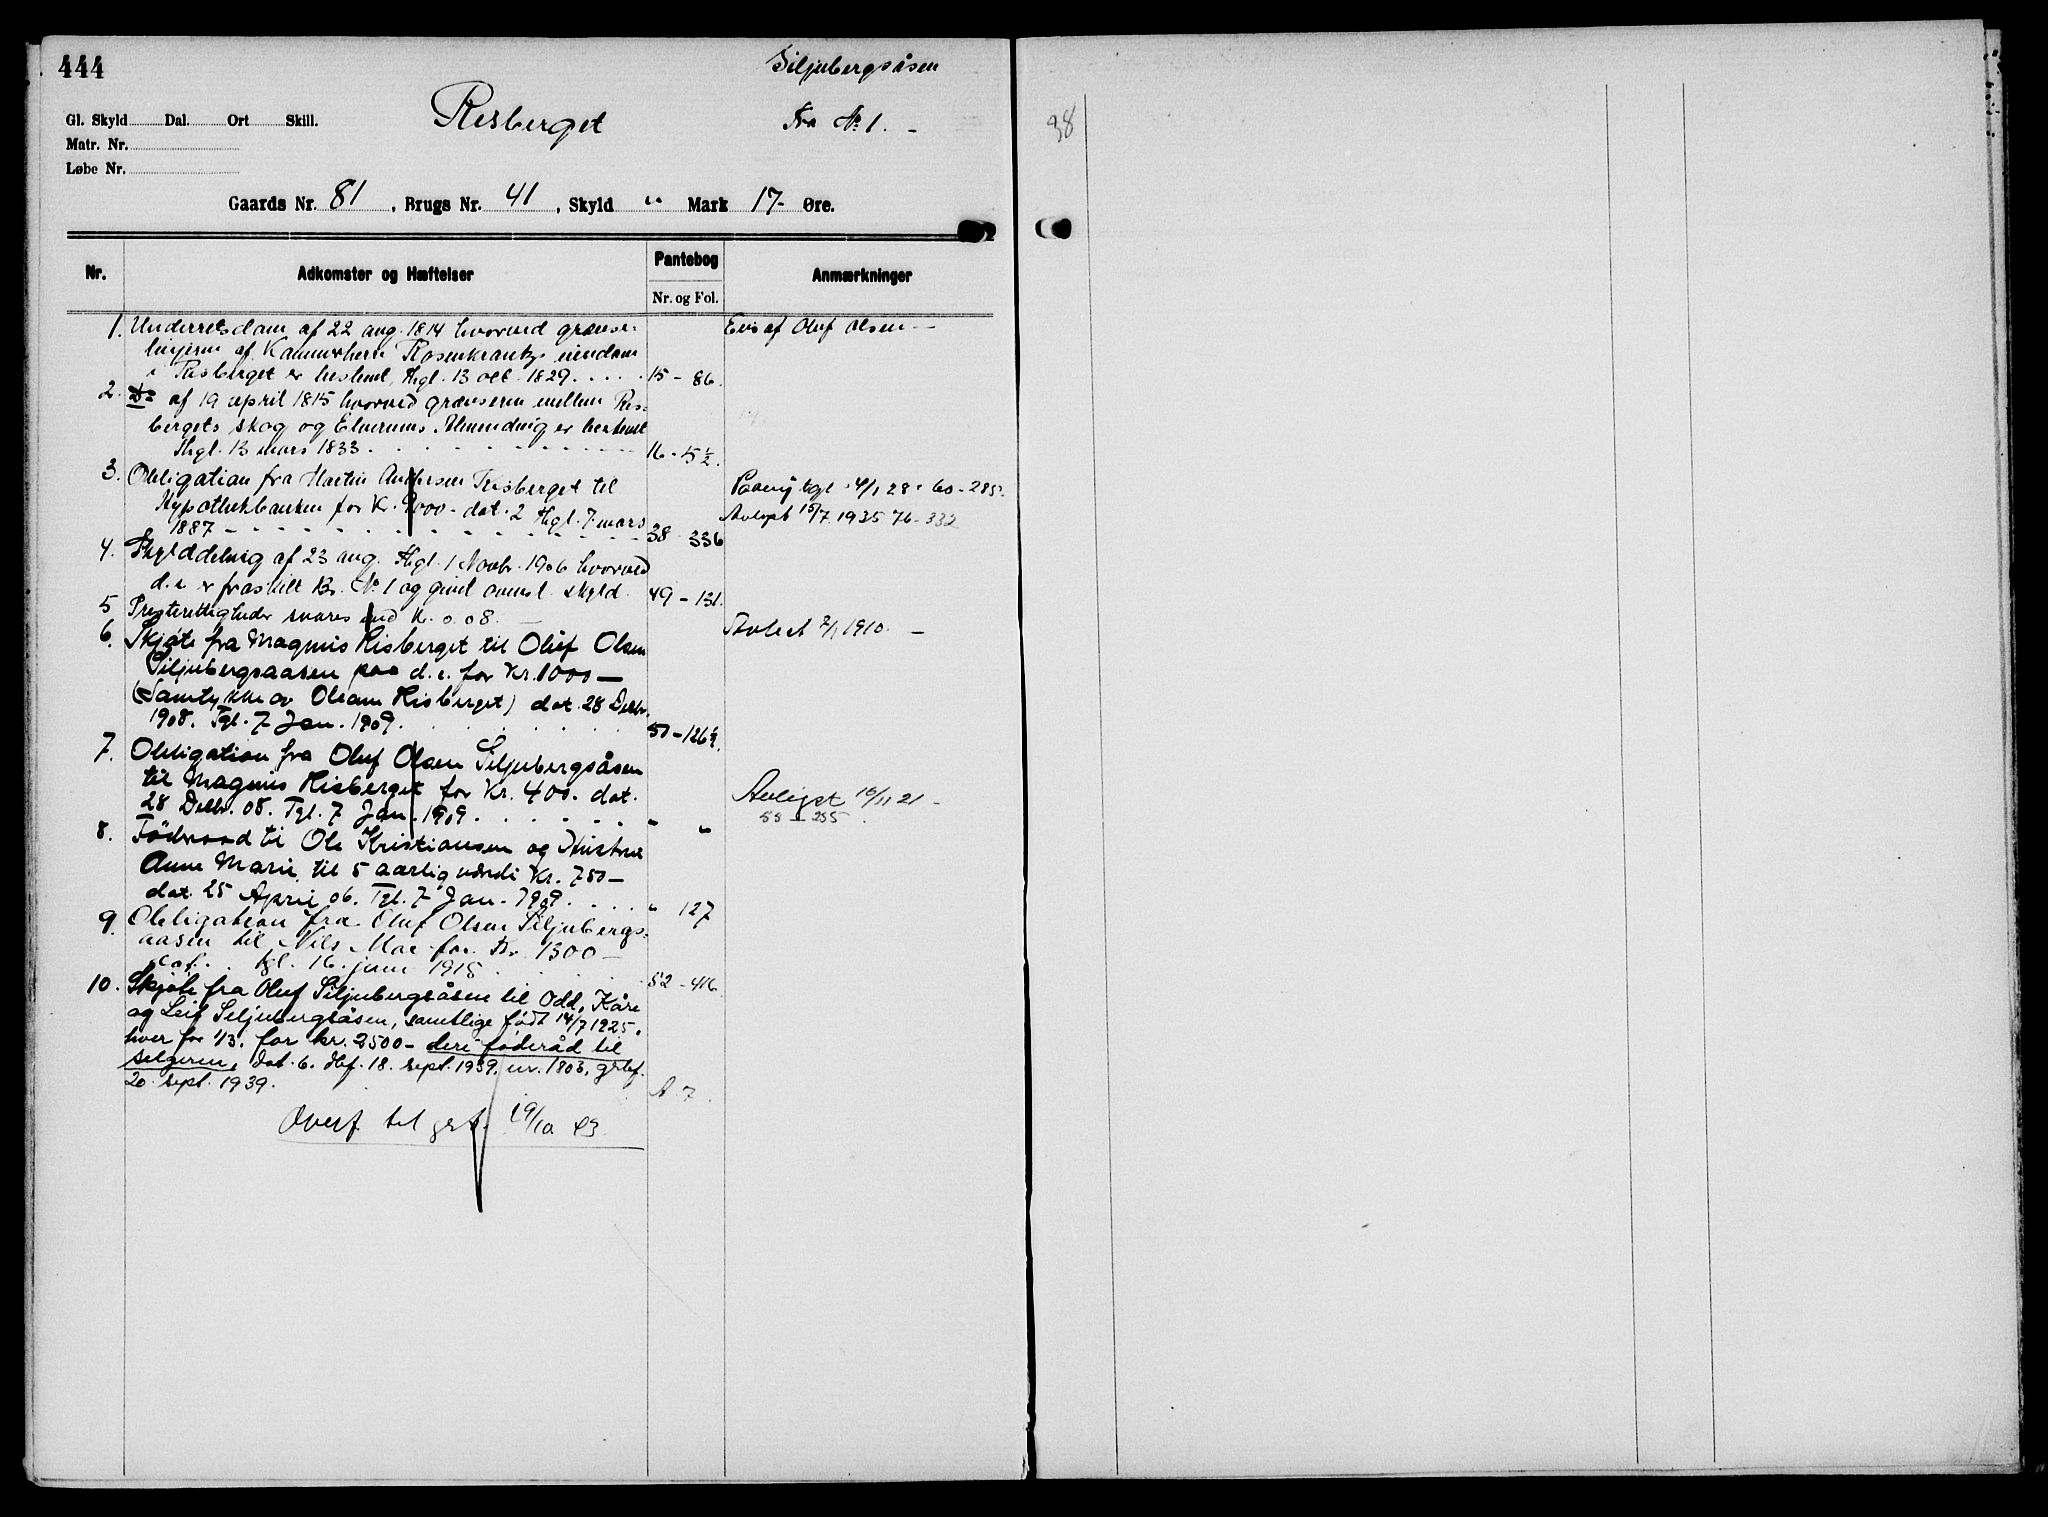 444
Siljubergsåsen
Risberget
Fra № 1. –
Gl. Skyld Dal. Ort Skill.
Matr. Nr.
Løbe Nr.
Gaards Nr. 81, Brugs Nr. 41, Skyld " Mark 17- Øre.
Nr.
Adkomster og Hæftelser
Pantebog
Nr. og Fol.
Anmærkninger
1. Underretsdom af 22 aug. 1814 hvorved grænse-
linjerne af Kammerherre Rosenkrantz eiendom
i Risberget er bestemt, thgl. 13 okt. 1829. . . . . 15 – 86.
Eies af Oluf Olsen –
2. Do af 19 april 1815 hvorved grænserne mellem Ris-
bergets skog og Elverums Almending er bestemt
Thgl. 13 mars 1833. 16 – 5½.
3. Obligation fra Martin Andersen Risberget til
Hypothekbanken for K. 9000 - dat. 2 thgl. 7 mars
1887 – 38 336
Paany tgl. 4/1 28 · 60 – 285.
Avlyst 15/7 1935 76 – 332
4. Skylddeling af 23 aug. thgl. 1 Novbr. 1906 hvorved
d. e. er fraskilt Br. № 1 og givet anmst. skyld. 49 – 131.
5 Presterettigheder svares med K. 0.08. –
Avlest 2/1 1910. –
6. Skjøte fra Magnus Risberget til Oluf Olsen
Siljubergsaasen paa d. e. for Kr. 1000 –
(Samtykke av Oleam Risberget) dat. 28 Decbr.
1908. Tgl. 7 Jan. 1909. 50 – 126½.
7. Obligation fra Oluf Olsen Siljubergsåsen
til Magnus Risberget for Kr. 400. dat.
28 Decbr. 08. Tgl. 7 Jan. 1909. . . . . . " "
Avlyst 16/11 21 –
55 – 255.
8. Föderaad til Ole Kristiansen og Hustru
Anne Marie til 5 aarlig værdi Kr. 750 –
dat. 25 April 06. Tgl. 7 Jan. 1909. . . . . " 127
9. Obligation fra Oluf Olsen Siljubergs-
aasen til Nils Moe for Kr. 1300 –
dat. . tgl. 16. juni 1915 52 – 416.
10. Skjøte fra Oluf Siljubergsåsen til Odd, Kåre
og Leif Siljubergsåsen, samtlige født 14/7 1925,
hver for 1/3. for kr. 2500 – deri föderåd til
selgeren, dat. 6. dbf. 18. sept. 1939. nr. 1803, grbf.
20. sept. 1939. A. 7.
Overf. til grb. 19/10 43
38